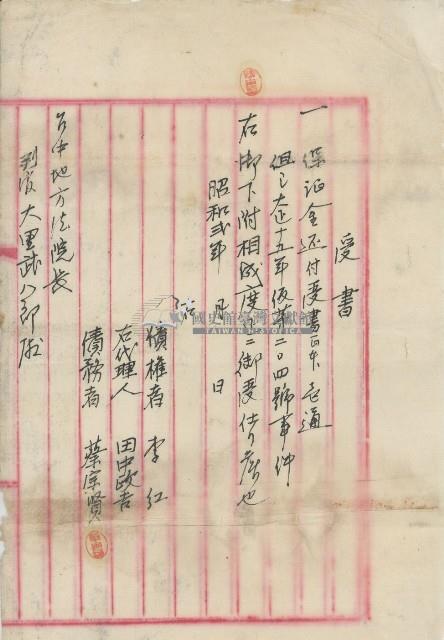 受書
一 保証金還付受書正本壱通
但シ大正十五年仮第二〇四號事件
右御下附相成度
御受仕候也
昭和弐年 月 日
債權者 李紅
右代理人 田中政吉
債務者 蔡宗賢
台中地方法院長
判官 大里武八郎殿
國史館臺灣文獻館
TAIWAN HISTORICA